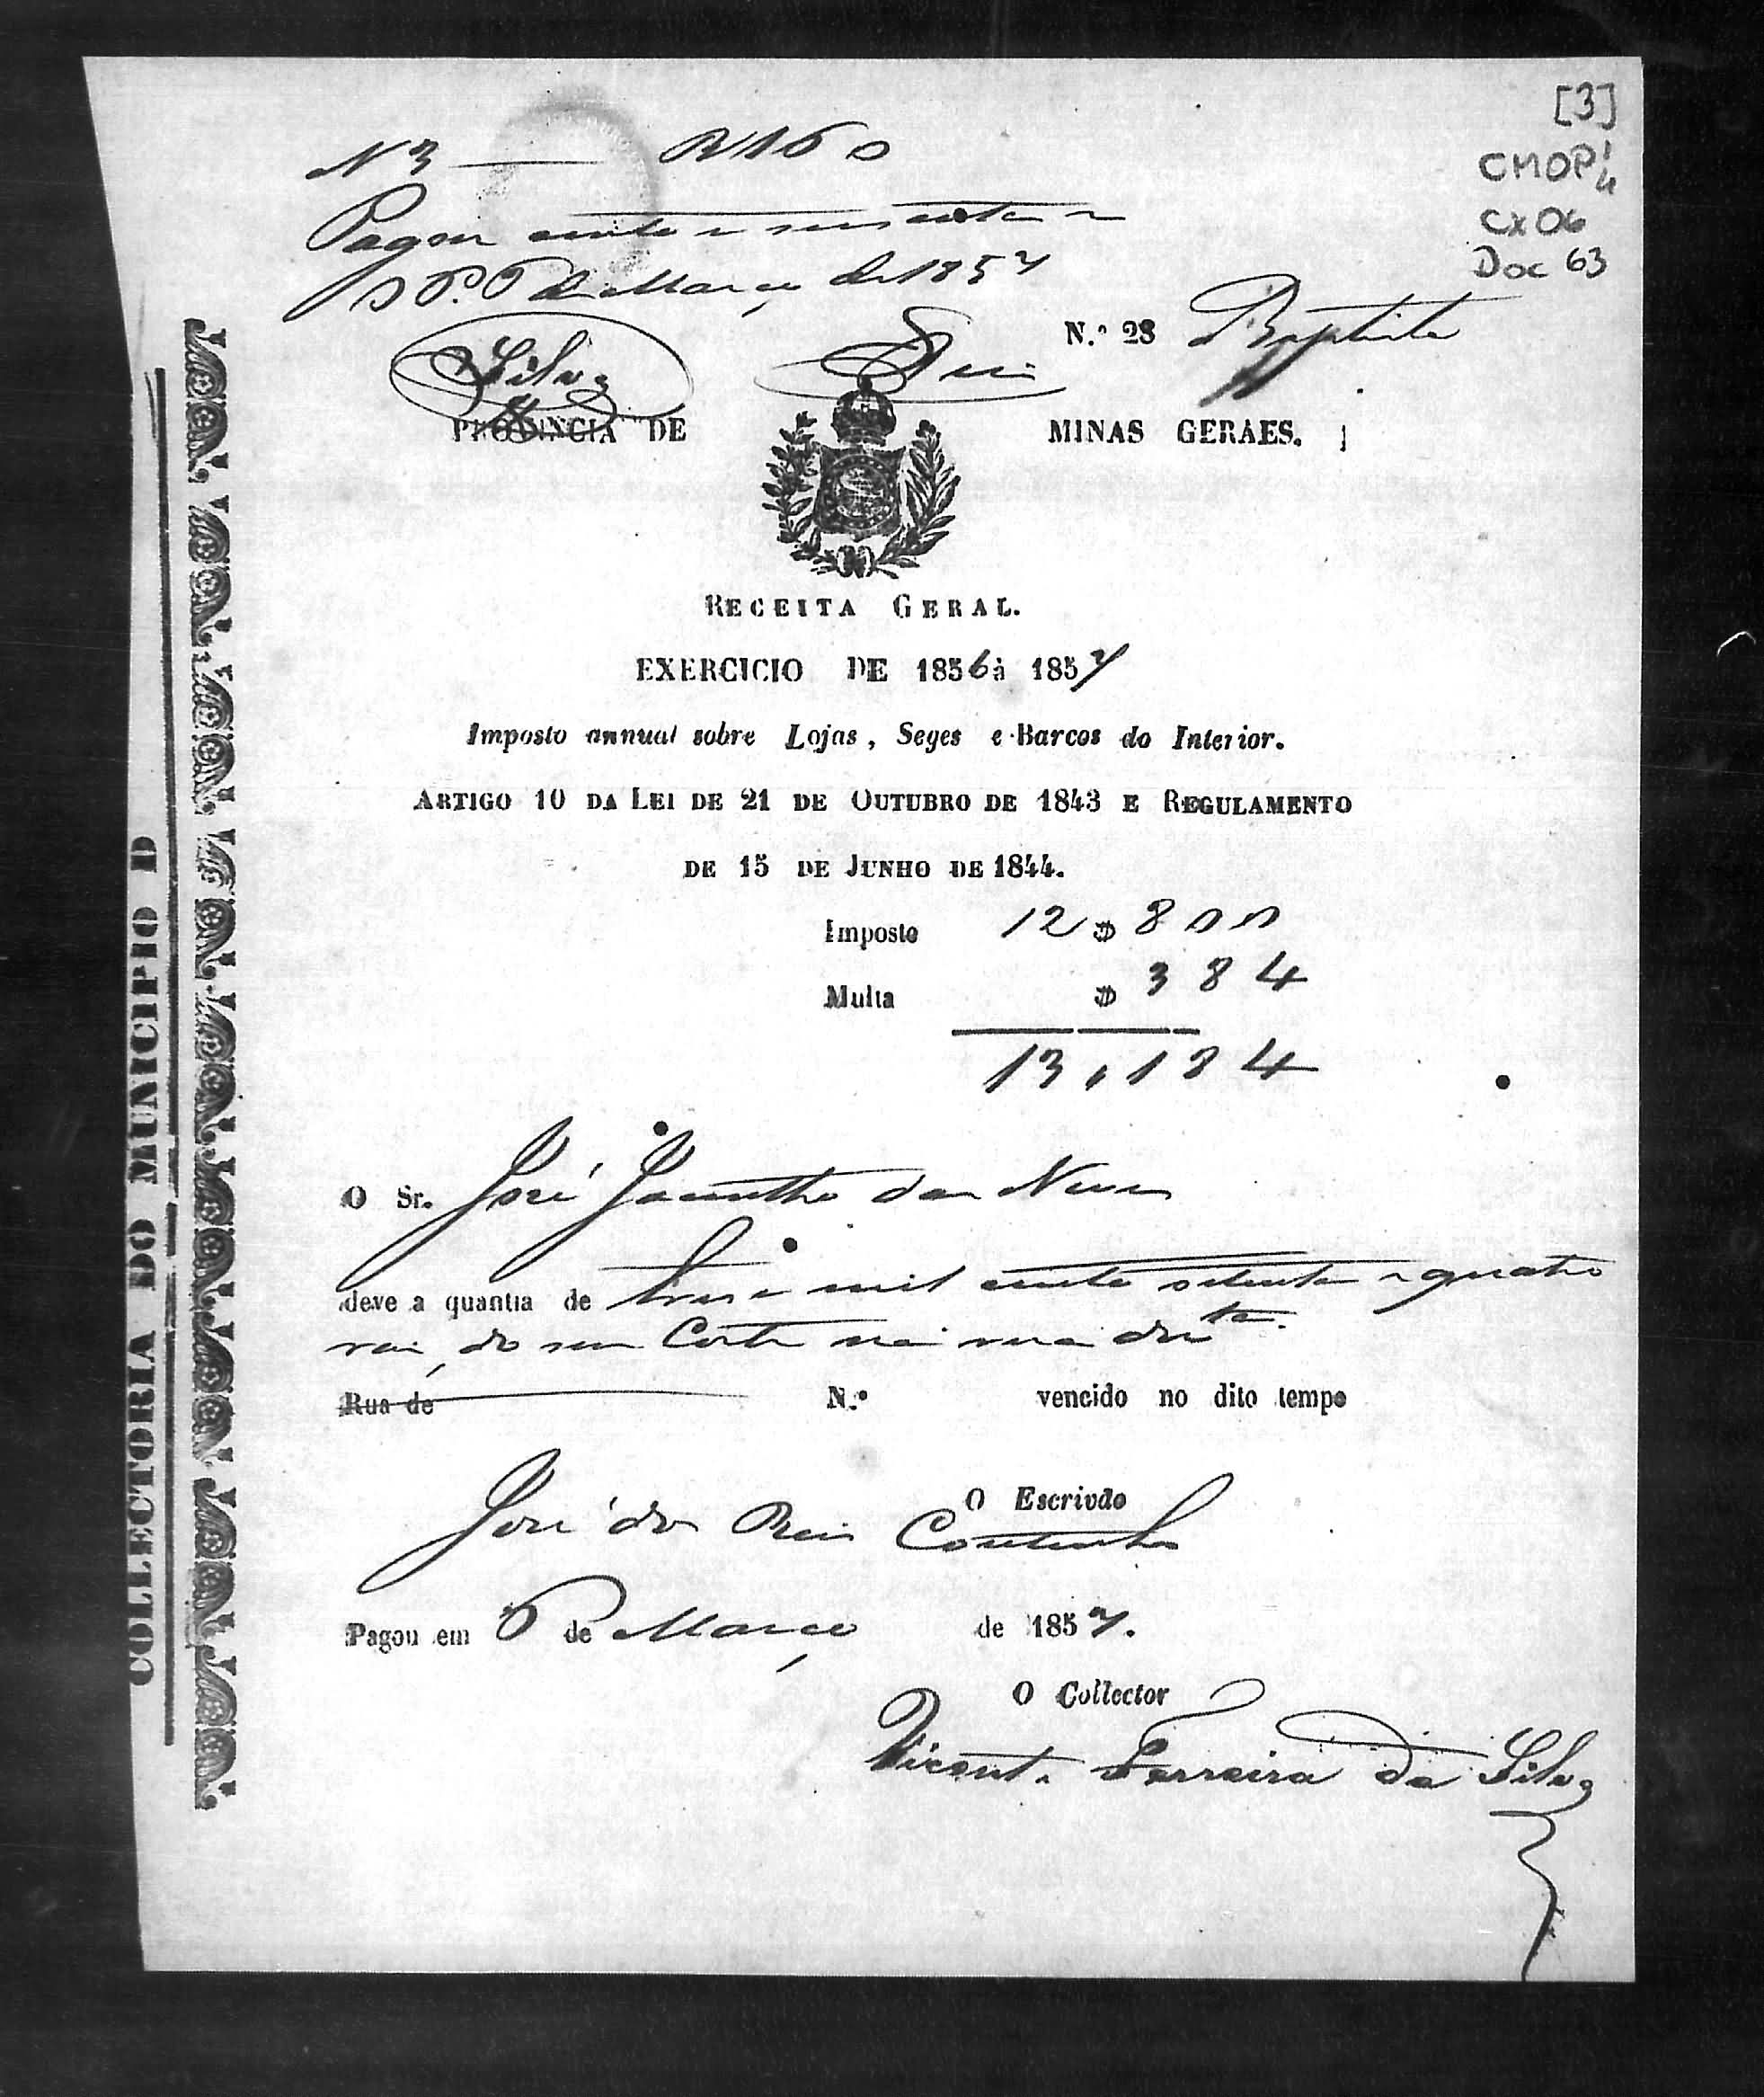 [3]
CMOP
Cx 06
Doc 63
N 3 — R 160
Pagou cento e sessenta r
OP. 6 de Março de 1857
Silva Reis
N.º 28 Baptista
PROVINCIA DE MINAS GERAES.
RECEITA GERAL.
EXERCICIO DE 1856 á 1857
Imposto annual sobre Lojas, Seges e Barcos do Interior.
ARTIGO 10 DA LEI DE 21 DE OUTUBRO DE 1843 E REGULAMENTO
DE 15 DE JUNHO DE 1844.
Imposto 12 $ 800
Multa $ 384
13,184
O Sr. José Jacintho das Neves
deve a quantia de trese mil cento oitenta e quatro
reis, do seu Corte na rua dirta.
Rua de N.º vencido no dito tempo
O Escrivão
José dos Reis Coutinho
Pagou em 6 de Março de 1857.
O Collector
Vicente Ferreira da Silva
COLLECTORIA DO MUNICIPIO D